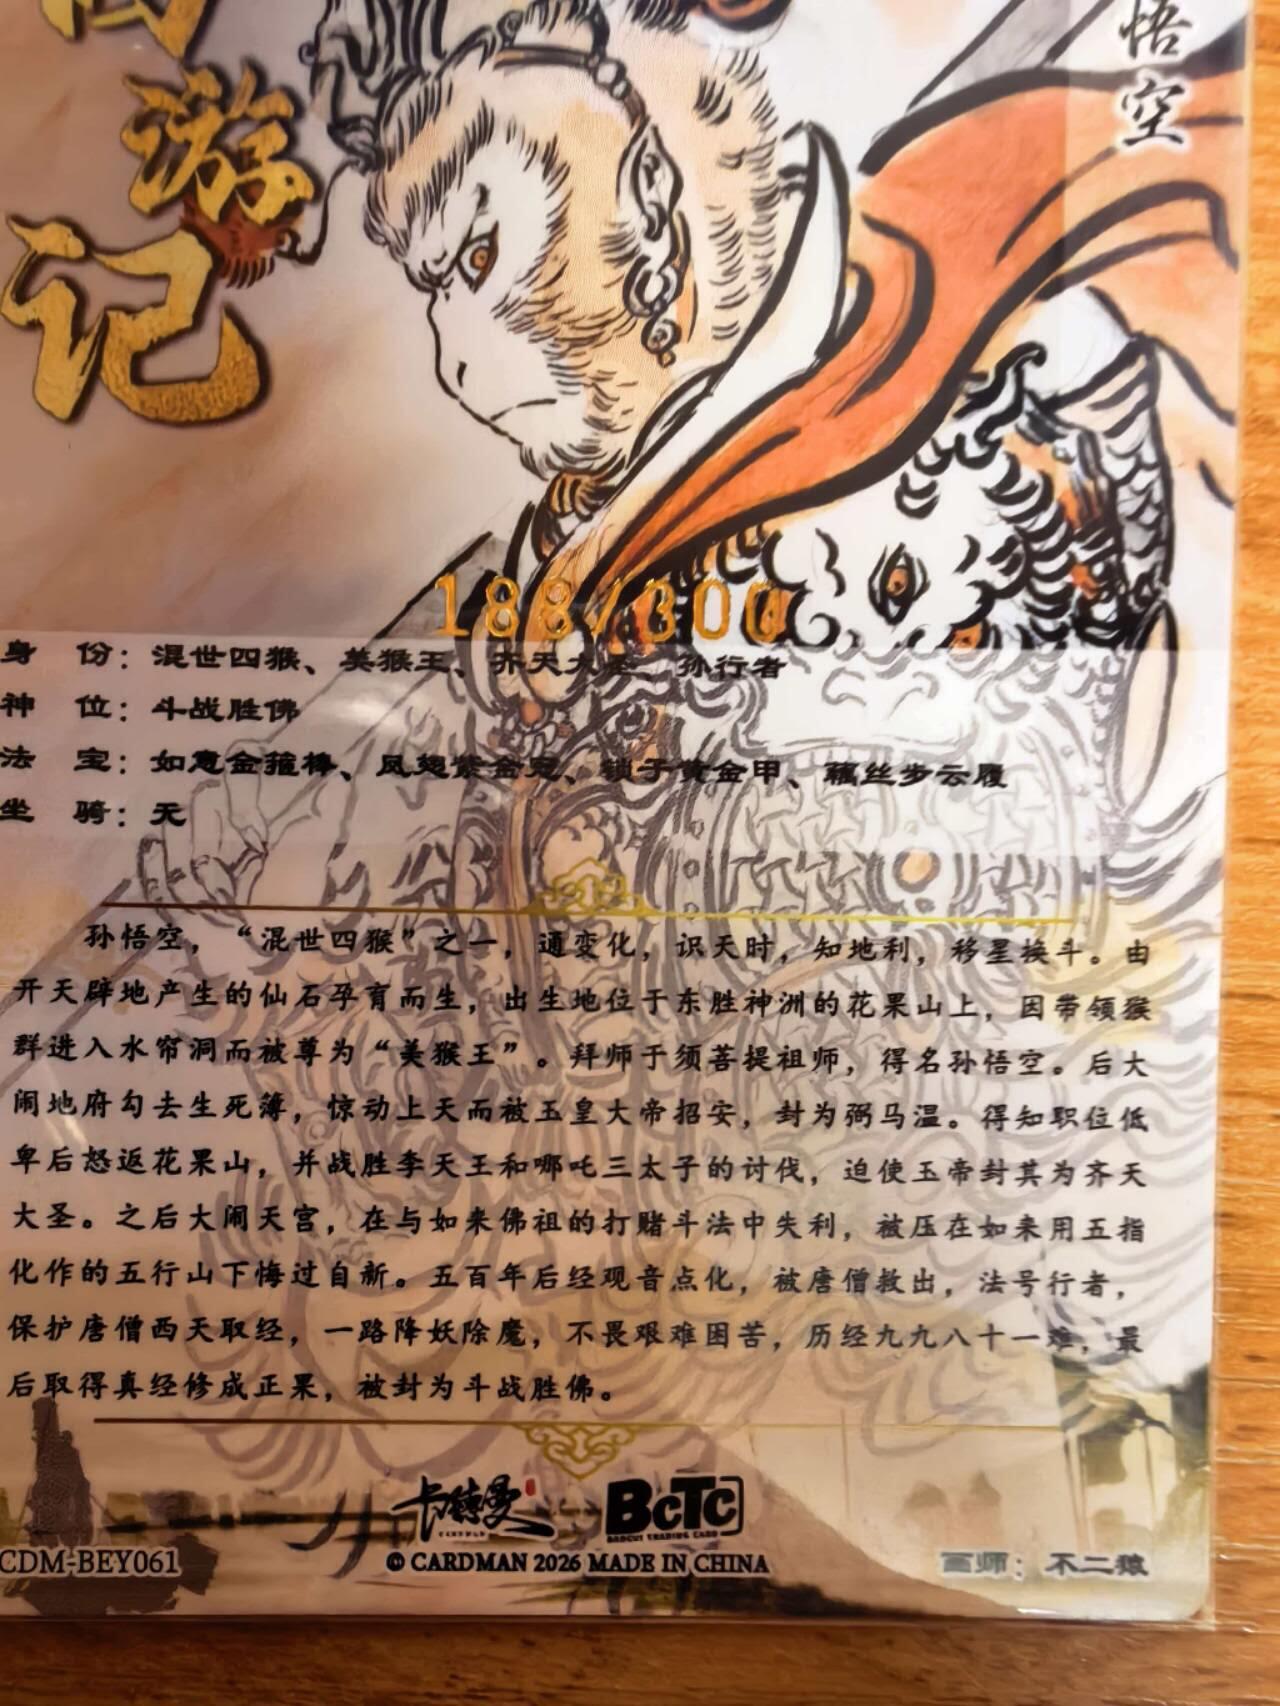 游
记
悟空
188/300
身 份：混世四猴、美猴王、齐天大圣、孙行者
神 位：斗战胜佛
法 宝：如意金箍棒、凤翅紫金冠、锁子黄金甲、藕丝步云履
坐 骑：无
孙悟空，“混世四猴”之一，通变化，识天时，知地利，移星换斗。由
开天辟地产生的仙石孕育而生，出生地位于东胜神洲的花果山上，因带领猴
群进入水帘洞而被尊为“美猴王”。拜师于须菩提祖师，得名孙悟空。后大
闹地府勾去生死簿，惊动上天而被玉皇大帝招安，封为弼马温。得知职位低
卑后怒返花果山，并战胜李天王和哪吒三太子的讨伐，迫使玉帝封其为齐天
大圣。之后大闹天宫，在与如来佛祖的打赌斗法中失利，被压在如来用五指
化作的五行山下悔过自新。五百年后经观音点化，被唐僧救出，法号行者，
保护唐僧西天取经，一路降妖除魔，不畏艰难困苦，历经九九八十一难，最
后取得真经修成正果，被封为斗战胜佛。
卡德曼
CARDMAN
BCTC
CDM-BEY061
© CARDMAN 2026 MADE IN CHINA
画师：不二狼